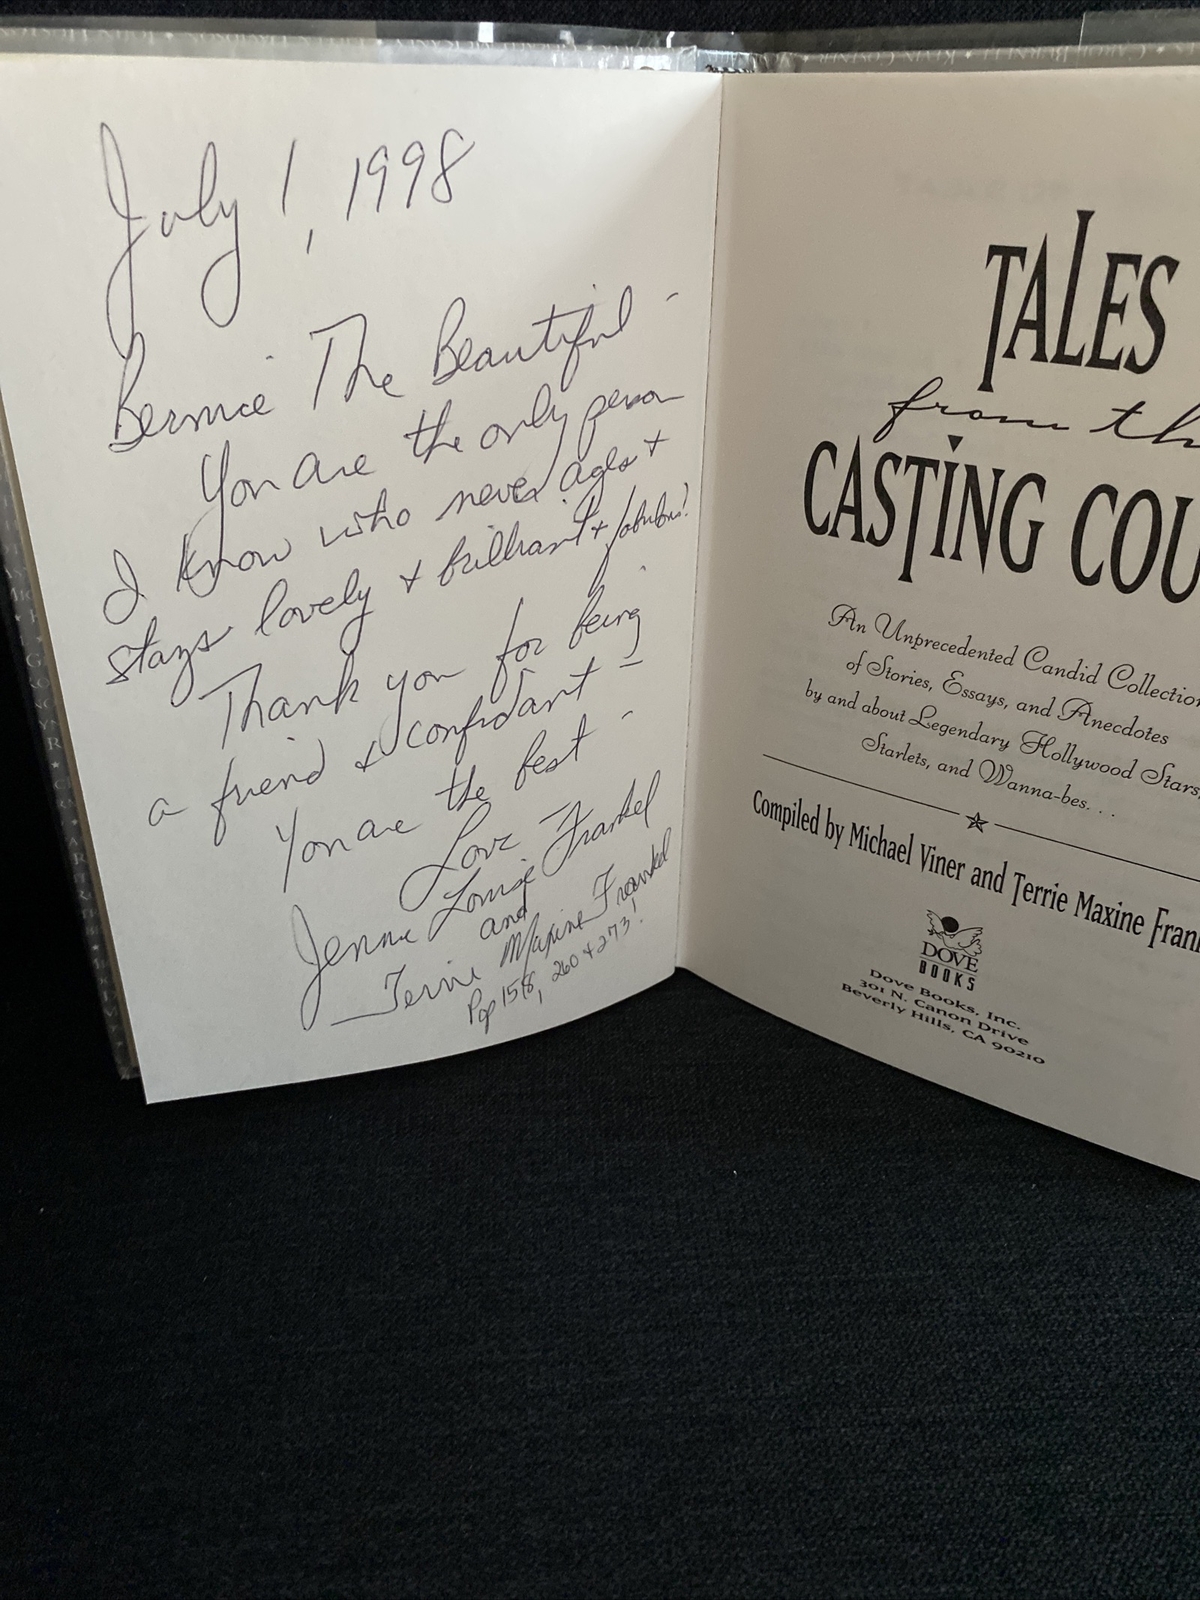 July 1, 1998
Bernie The Beautiful -
You are the only person
I know who never ages +
stays lovely + brilliant + fabulous!
Thank you for being
a friend & confidant -
You are the best -
Love
Jennie Louise Frankel
and
Terrie Maxine Frankel
Pgs 158, 260 + 273!
TALES
from th
CASTING COU
An Unprecedented Candid Collection
of Stories, Essays, and Anecdotes
by and about Legendary Hollywood Stars,
Starlets, and Wanna-bes. . .
Compiled by Michael Viner and Terrie Maxine Fran
DOVE
BOOKS
Dove Books, Inc.
301 N. Canon Drive
Beverly Hills, CA 90210